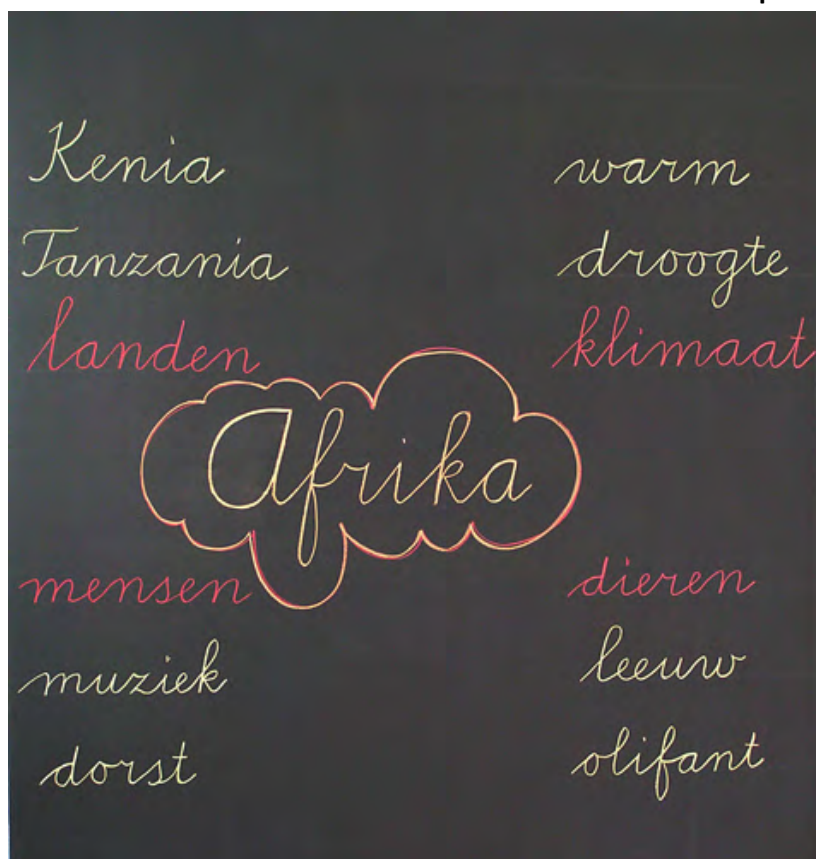 Kenia
Tanzania
landen
warm
droogte
klimaat
Afrika
mensen
muziek
dorst
dieren
leeuw
olifant